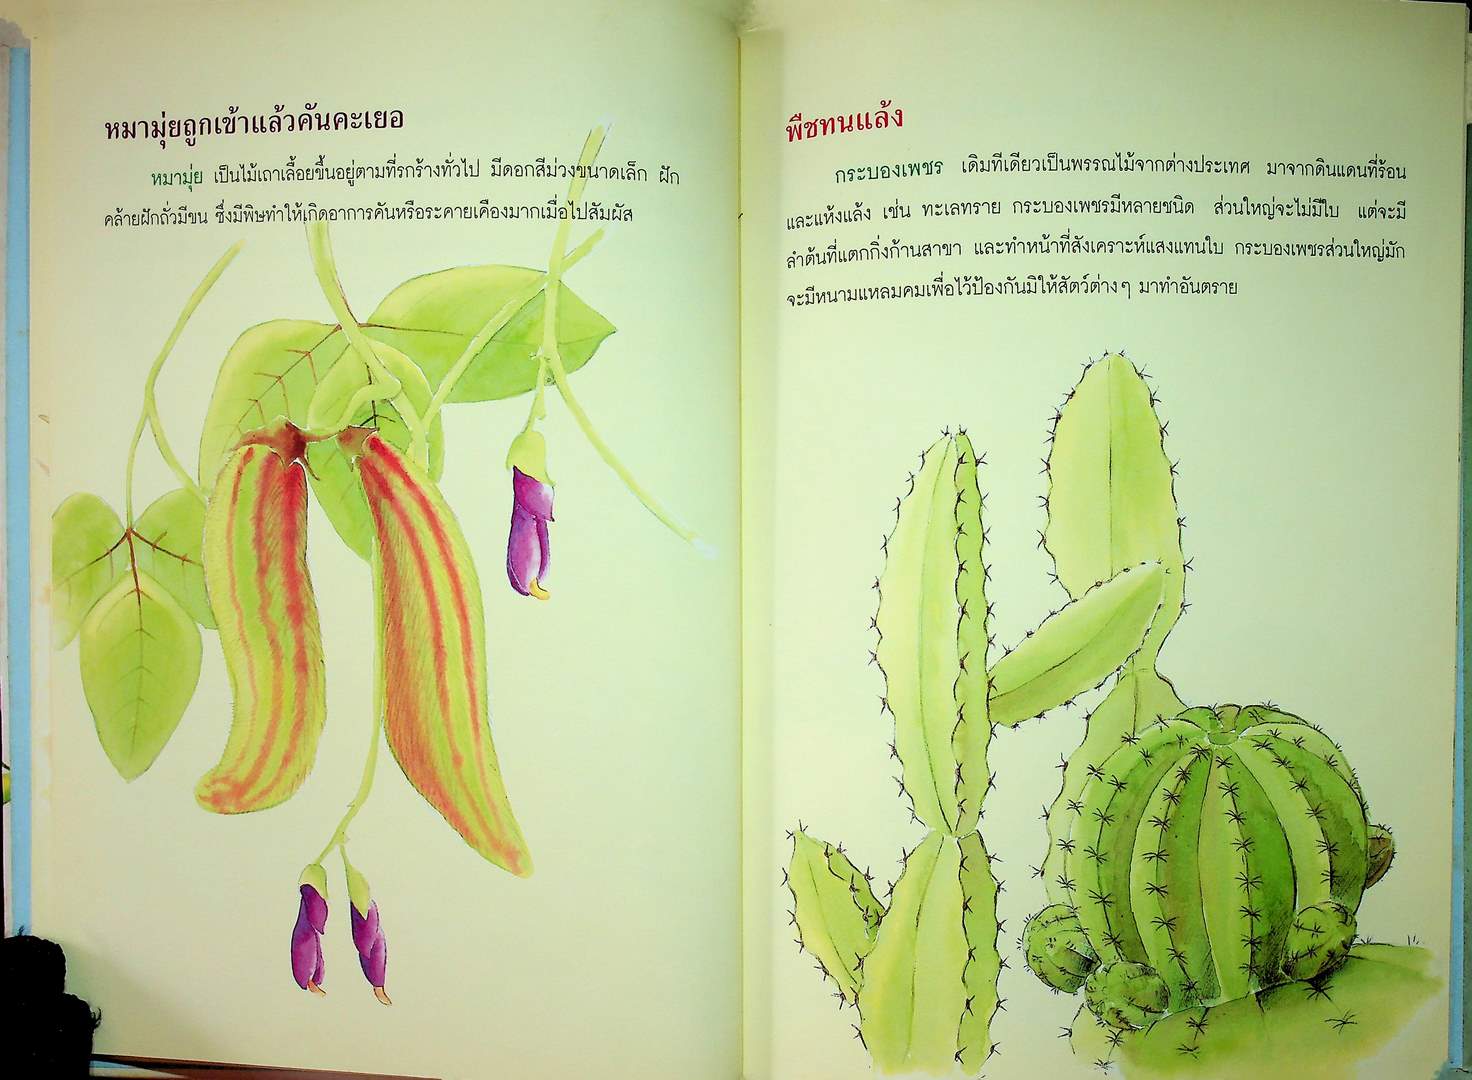 หมามุ่ยถูกเข้าแล้วคันคะเยอ
หมามุ่ย เป็นไม้เถาเลื้อยขึ้นอยู่ตามที่รกร้างทั่วไป มีดอกสีม่วงขนาดเล็ก ฝัก
คล้ายฝักถั่วมีขน ซึ่งมีพิษทำให้เกิดอาการคันหรือระคายเคืองมากเมื่อไปสัมผัส
พืชทนแล้ง
กระบองเพชร เดิมทีเดียวเป็นพรรณไม้จากต่างประเทศ มาจากดินแดนที่ร้อน
และแห้งแล้ง เช่น ทะเลทราย กระบองเพชรมีหลายชนิด ส่วนใหญ่จะไม่มีใบ แต่จะมี
ลำต้นที่แตกกิ่งก้านสาขา และทำหน้าที่สังเคราะห์แสงแทนใบ กระบองเพชรส่วนใหญ่มัก
จะมีหนามแหลมคมเพื่อไว้ป้องกันมิให้สัตว์ต่างๆ มาทำอันตราย